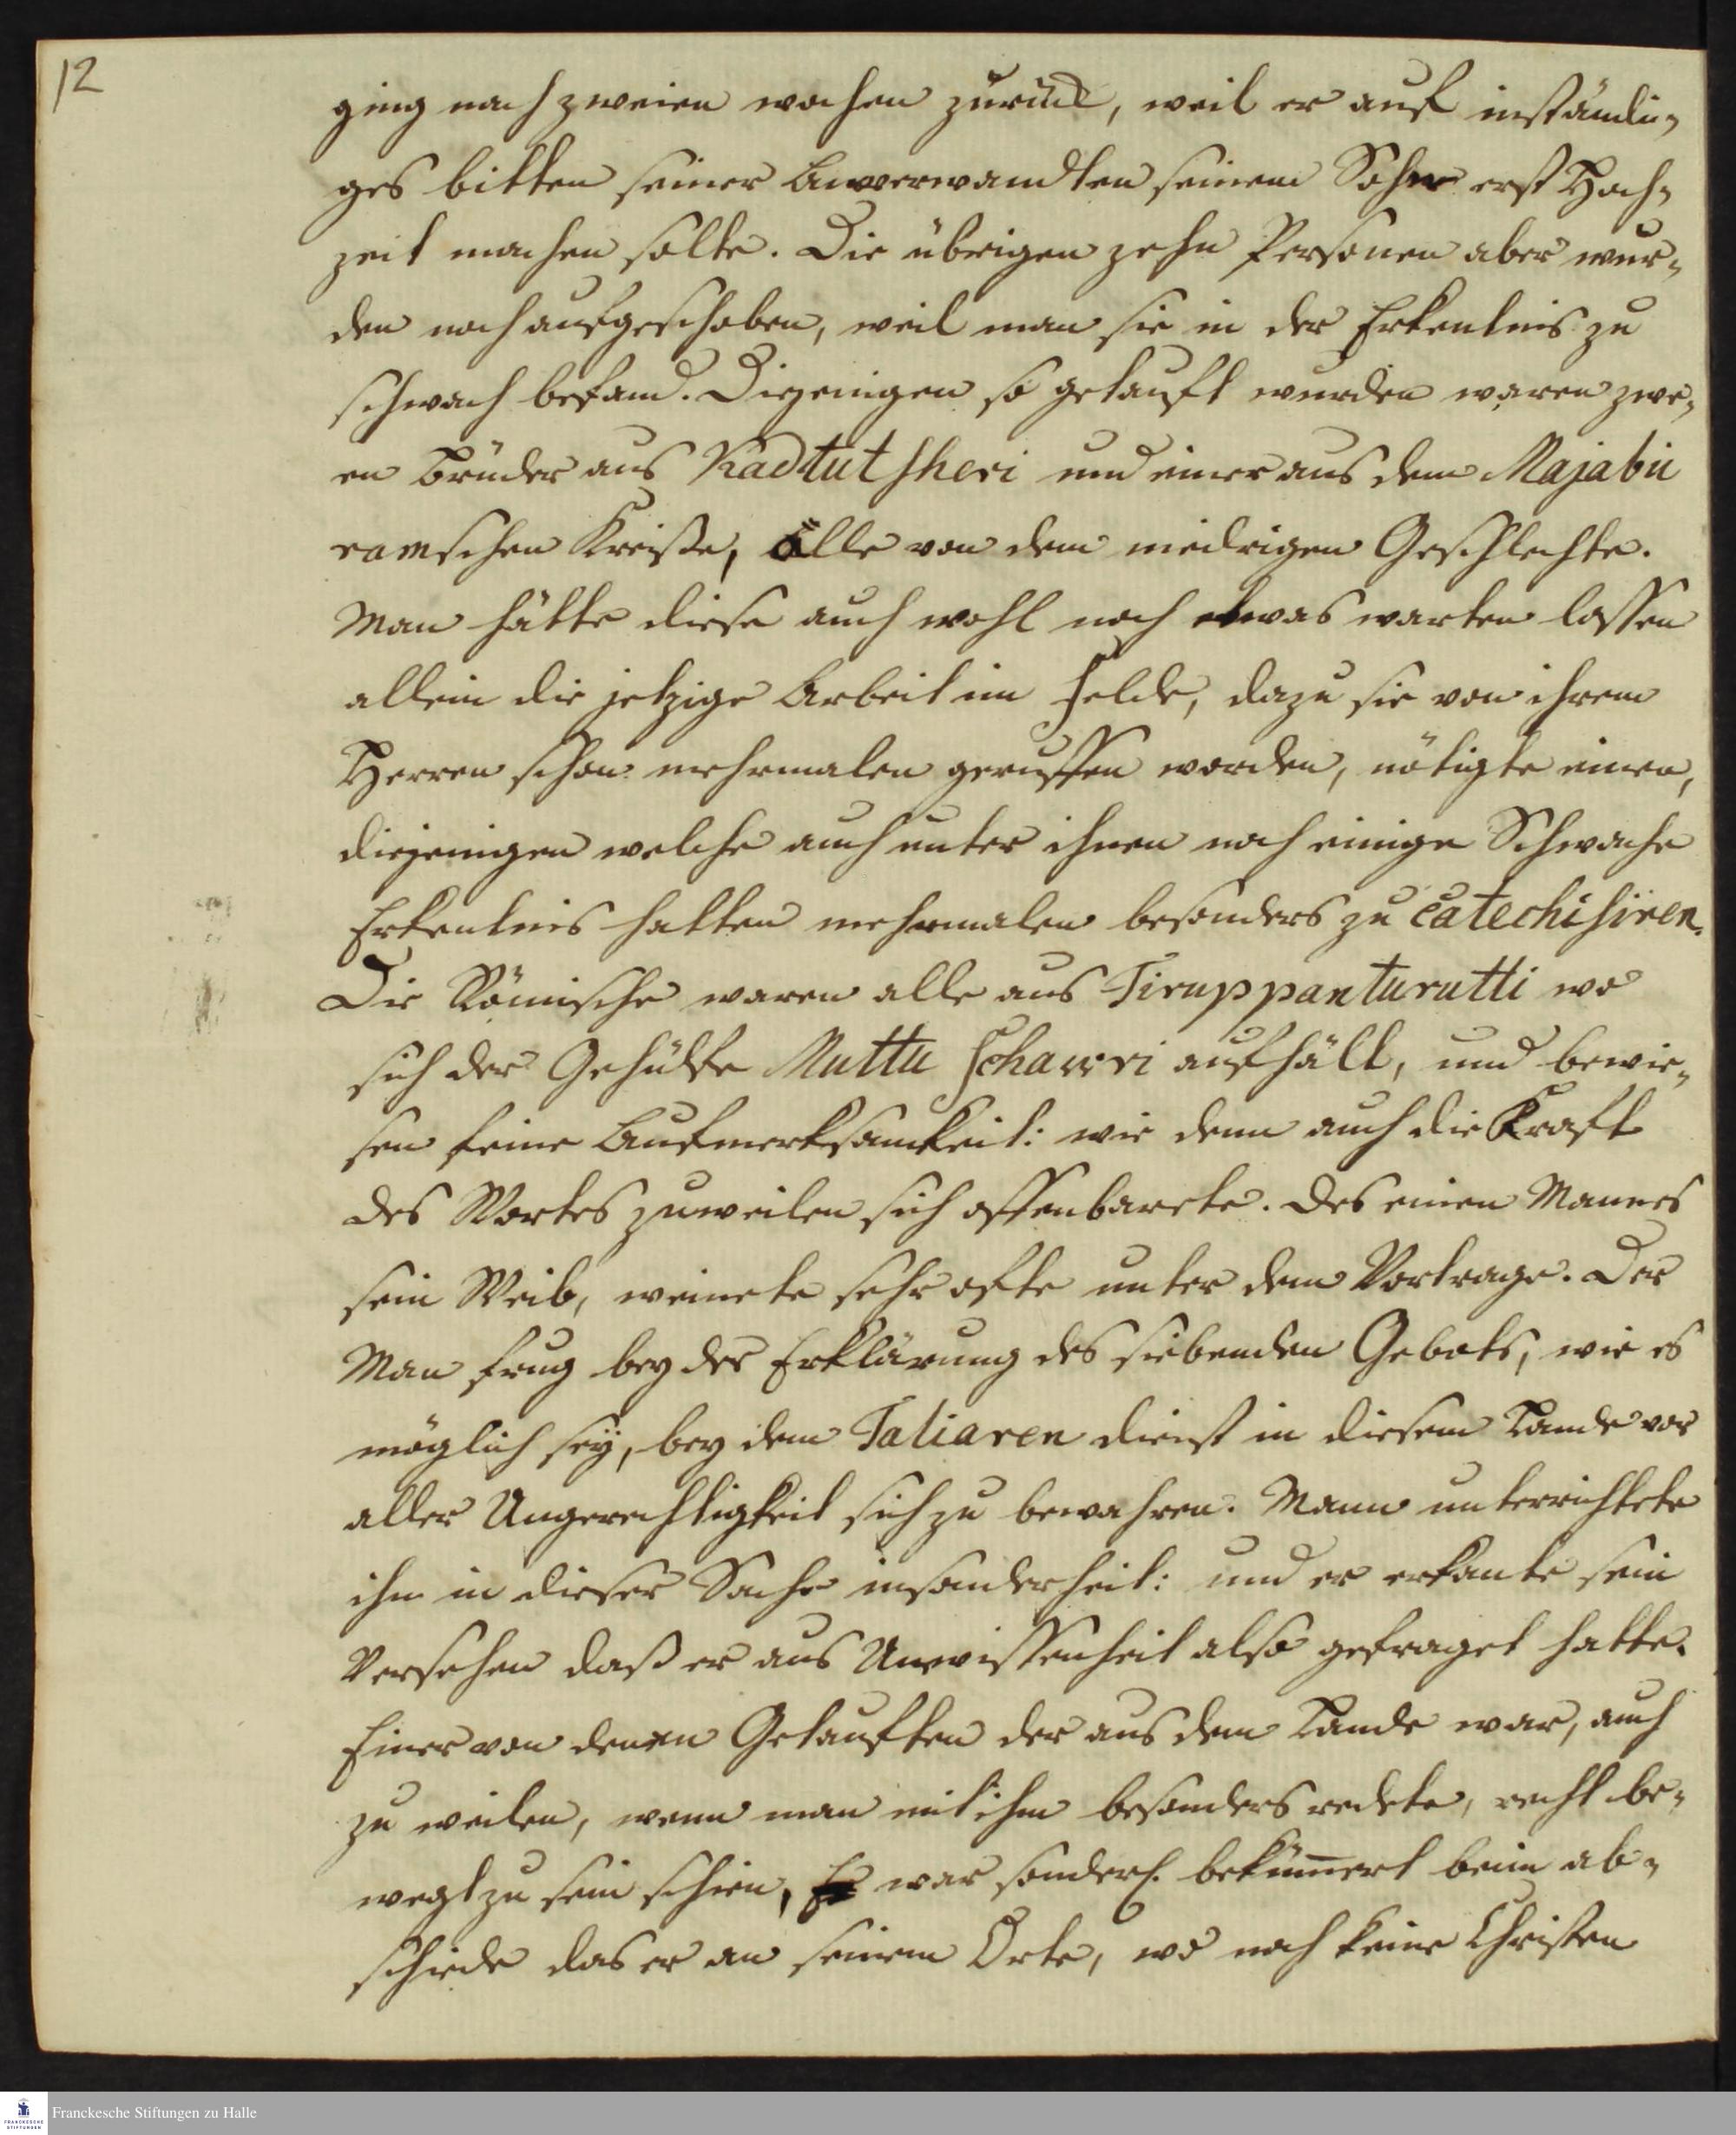 12
ging nach zweien wochen zurück, weil er auf inständi-
ges bitten seiner Anverwandten seinem Sohne erst Hoch-
zeit machen solte. Die übrigen zehn Personen aber wur-
den noch aufgeschoben, weil man sie in der Erkentnis zu
schwach befand. Diejenigen so getauft wurden waren zwe-
en Brüder aus Kadtutsheri und einer aus dem Majabu
ramschen Kreiße, alle von dem niedrigen Geschlechte.
Man hätte diese auch wohl noch etwas warten lassen
allein die jetzige Arbeit im Felde, dazu sie von ihrem
Herren schon mehrmalen geruffen worden, nötigte einen,
diejenigen welche auch unter ihnen noch einige Schwache
Erkentnis hatten mehrmalen besonders zu catechisiren.
Die Römische waren alle aus Tiruppanturutti wo
sich der Gehülfe Muttu Schawri aufhält, und bewie-
sen feine Aufmerksamkeit: wie denn auch die Kraft
des Wortes zuweilen sich offenbarete. Des einen Mannes
sein Weib, weinete sehr ofte unter dem Vortrage. Der
Man frug bey der Erklärung des siebenden Gebots, wie es
möglich seÿ, bey dem Taliaren dienst in diesem Lande vor
aller Ungerechtigkeit sich zu bewahren. Mann unterrichtete
ihn in dieser Sache insonderheit: und er erkante sein
Versehen daß er aus Unwissenheit also gefraget hatte.
Einer von denen Getauften der aus dem Lande war, auch
zu weilen, wenn man mit ihm besonders redete, recht be-
wegt zu sein schien, war sonderl. bekümert beim ab-
schiede das er an seinem Orte, wo noch keine Christen
Franckesche Stiftungen zu Halle
FRANCKESCHE
STIFTUNGEN